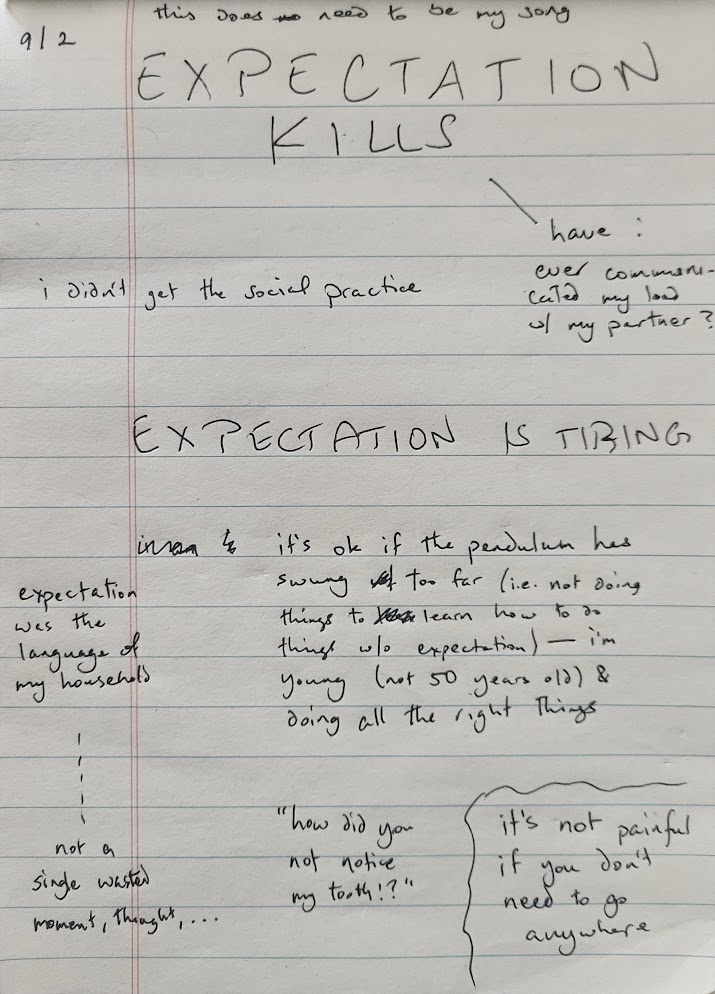 this does need to be my song
9/2
EXPECTATION
KILLS
have :
ever communi-
cated my load
w/ my partner?
i didn't get the social practice
EXPECTATION IS TIRING
it's ok if the pendulum has
swung too far (i.e. not doing
things to learn how to do
things w/o expectation) — i'm
young (not 50 years old) &
doing all the right things
expectation
was the
language of
my household
not a
single wasted
moment, thought, ...
"how did you
not notice
my tooth!?"
it's not painful
if you don't
need to go
anywhere